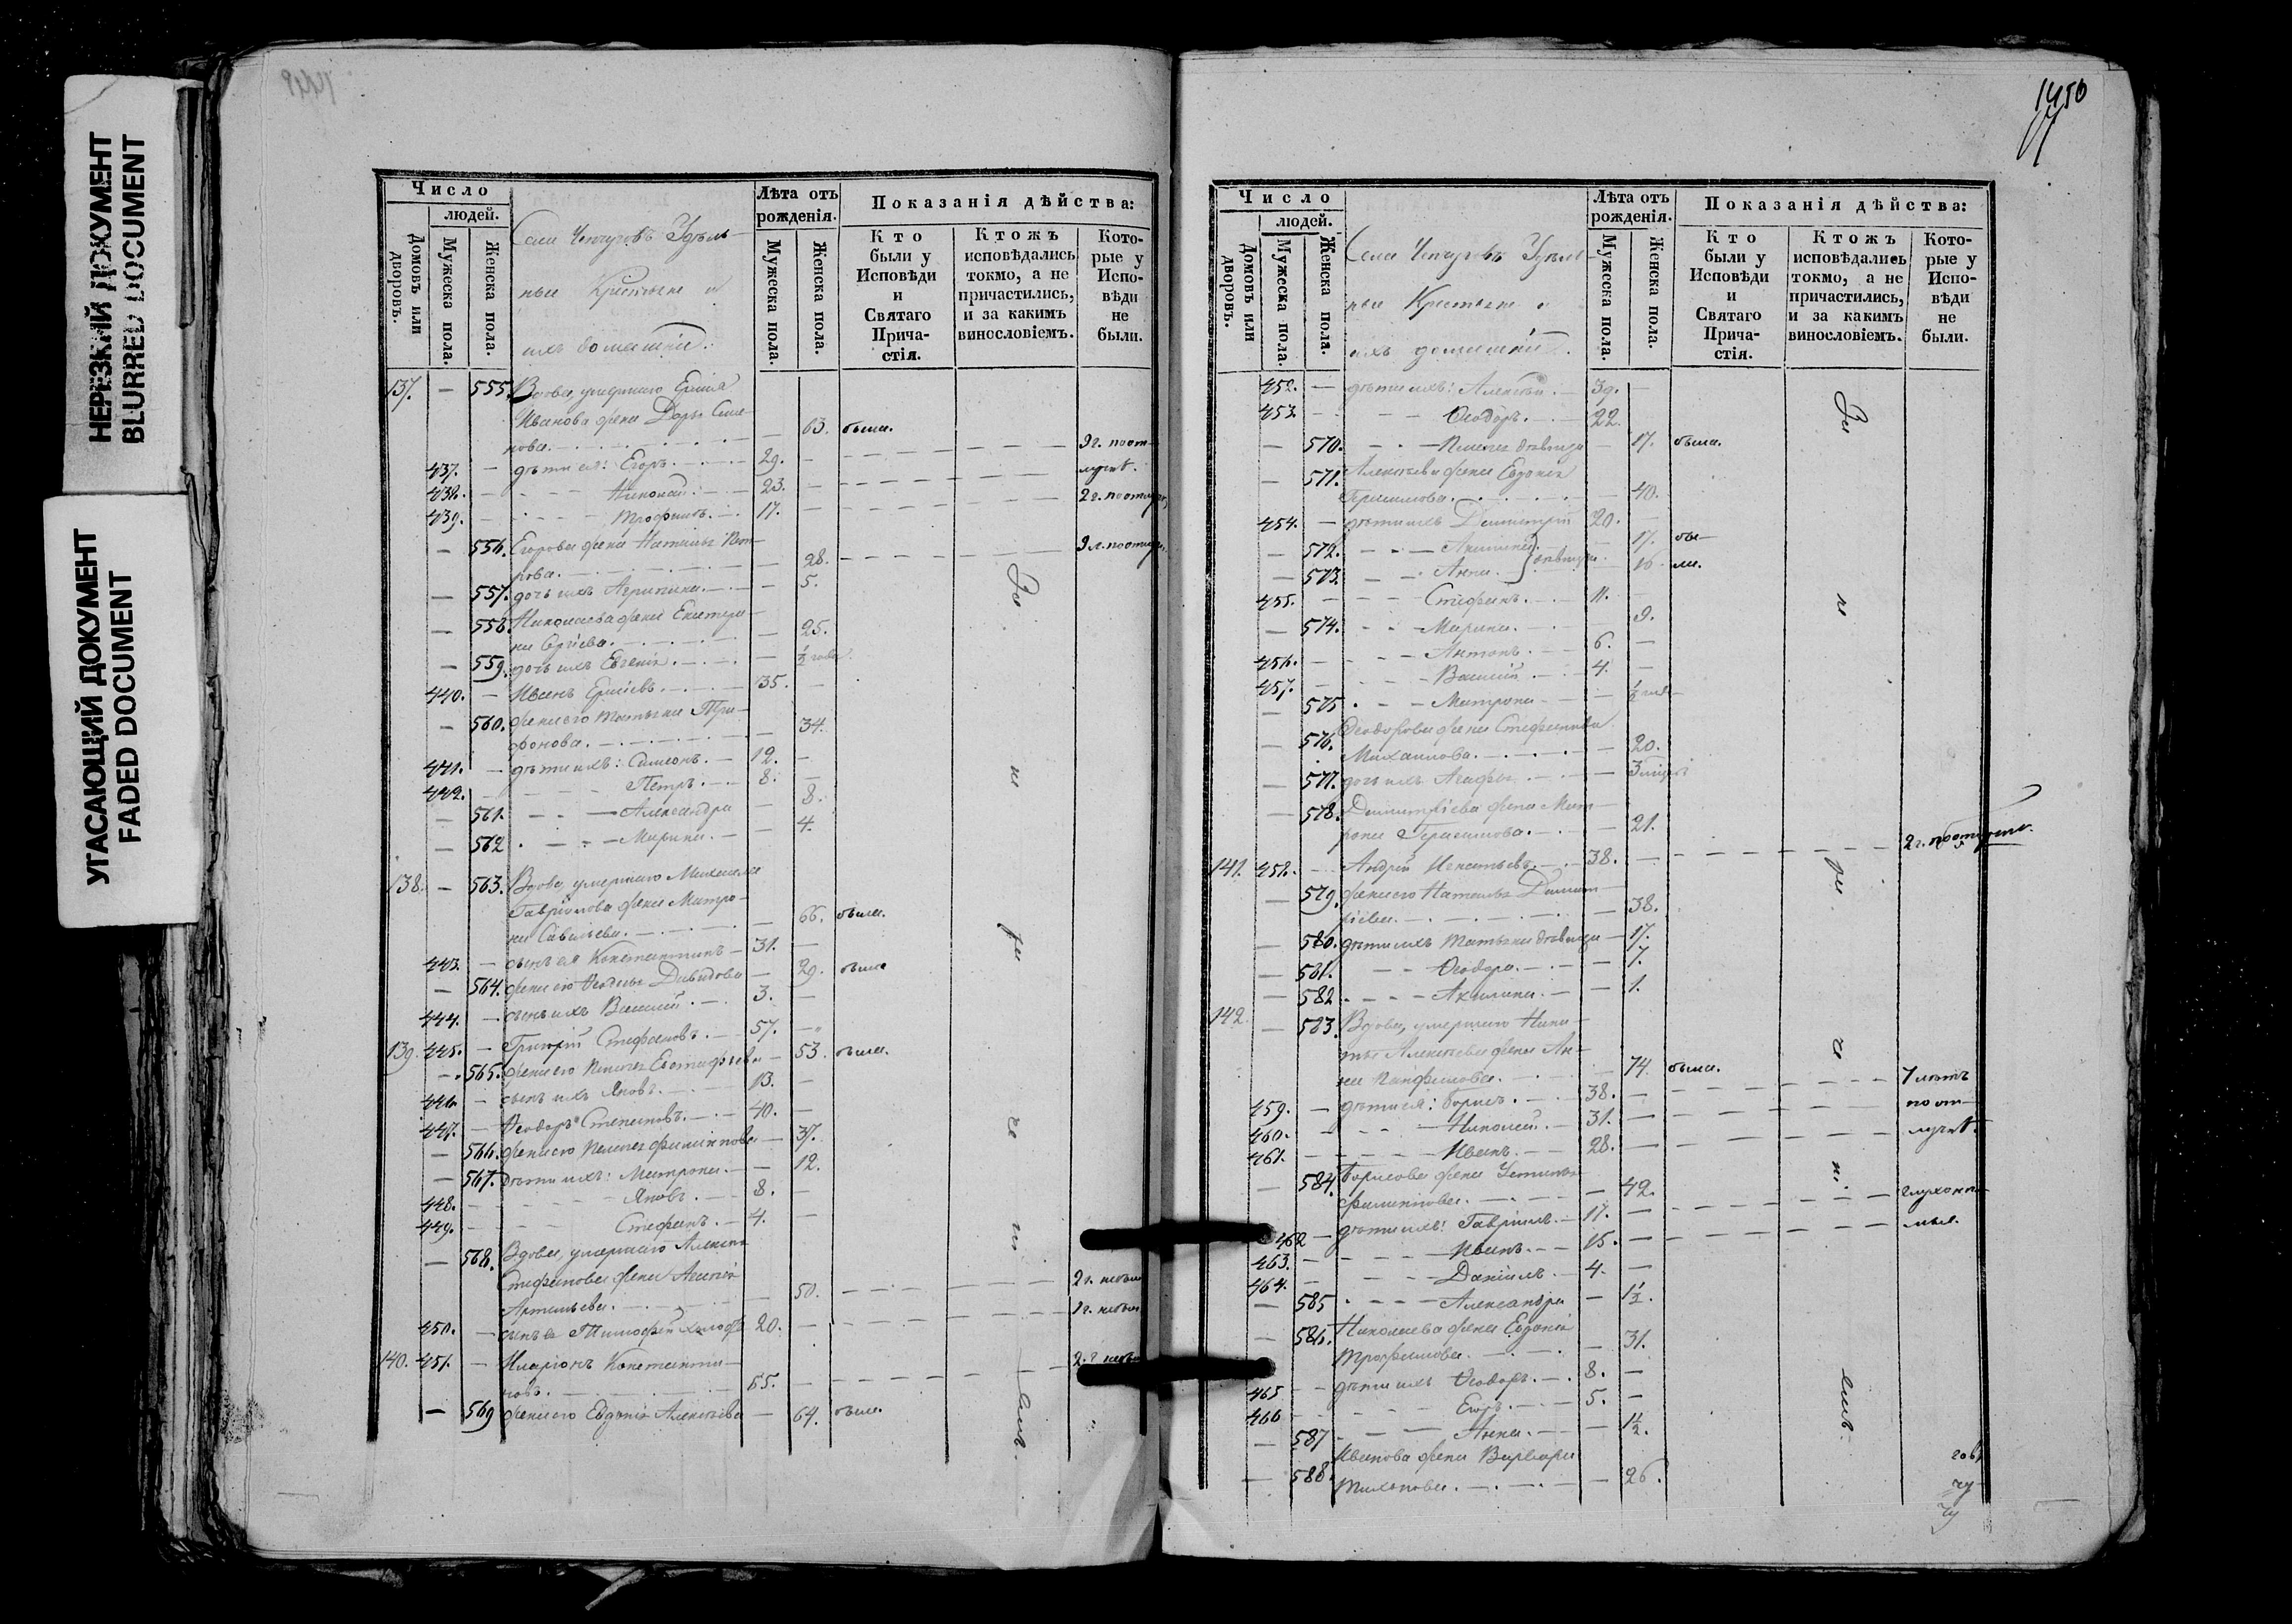 НЕРЕЗКИЙ ДОКУМЕНТ
BLURRED DOCUMENT
УГАСАЮЩИЙ ДОКУМЕНТ
FADED DOCUMENT
Число
людей.
Домовъ или дворовъ.
Мужеска пола.
Женска пола.
Села Удѣль-
ные Крестьяне и
ихъ домашніе.
Лѣта отъ рожденія.
Мужеска пола.
Женска пола.
Показанія дѣйства:
Кто были у Исповѣди и Святаго Прича-стія.
Ктожъ исповѣдались токмо, а не причастились, и за какимъ винословіемъ.
Кото-рые у Испо-вѣди не были.
137. — 555. Вдова, умершаго
Иванова жена Дарья Симо-
нова. — 63. была.
437. — дѣти ея: Егоръ. 29. —
438. — Николай. 23. —
439. — Трофимъ. 17. —
— 556. Егорова жена Наталья Пет-
рова. — 28.
— 557. дочь ихъ Агрипина. — 5.
— 558. Николаева жена Екатери-
на Сергіева. — 25.
— 559. дочь ихъ Евгенія. — ½ года.
440. — Иванъ 35. —
— 560. жена его Татьяна Три-
фонова. — 34.
441. — дѣти ихъ: Симеонъ. 12. —
442. — Петръ. 8. —
— 561. Александра — 8.
— 562 Марина. — 4.
138. — 563. Вдова, умершаго Михаила
Гавріилова жена Матро-
на Савельева. — 66. была.
443. — сынъ ея Константинъ 31. —
— 564. жена его Ѳеодосья Давидова — 29. была
444. — сынъ ихъ Василій. 3. —
139. 445. — Григорій Стефановъ. 57. —
— 565. жена его Пелагея Евстафьева — 53. была.
446. — сынъ ихъ Яковъ. 13. —
447. — Ѳеодоръ Степановъ. 40. —
— 566. жена его Пелагея Филиппова — 37.
— 567. дѣти ихъ: Матрона. — 12.
448. — Яковъ. 8. —
449. — Стефанъ. 4. —
— 568. Вдова, умершаго Алексея
Стефанова жена
Артемьева. — 50.
450. — сынъ ея Тимофей 20. —
140. 451. — Иларіонъ Константи-
новъ. 65. —
— 569 жена его Евдокія Алексѣева — 64. была.
1450
Число
людей.
Домовъ или дворовъ.
Мужеска пола.
Женска пола.
Села Удѣль-
ные Крестьяне и
ихъ домашніе.
Лѣта отъ рожденія.
Мужеска пола.
Женска пола.
Показанія дѣйства:
Кто были у Исповѣди и Святаго Прича-стія.
Ктожъ исповѣдались токмо, а не причастились, и за какимъ винословіемъ.
Кото-рые у Испо-вѣди не были.
452. — дѣти ихъ: Алексѣй. 39. —
453. — Ѳеодоръ. 22.
— 570. Пелагея дѣвица — 17. была.
— 571. Алексѣева жена Евдокія
Герасимова. — 40.
454. — дѣти ихъ Димитрій 20. —
— 572. Акилина — 17. бы-
— 573. Анна. дѣвицы. — 16 ли.
455. — Стефанъ. 11. —
— 574. Марина. — 9.
456. — Антонъ. 6. —
457. — Василій. 4. —
— 575 Матрона — ½
— 576. Ѳеодорова жена Стефанида
Михаилова. — 20.
— 577. дочь ихъ Агафья. — 3
— 578. Димитріева жена Мат-
рона Герасимова. — 21.
141. 458. — Андрей Игнатьевъ. 38. —
— 579. жена его Наталья Димит-
ріева. — 38.
— 580. дѣти ихъ Татьяна дѣвица — 17.
— 581. Ѳеодора. — 7.
— 582 Акилина. — 1.
142. — 583. Вдова, умершаго Ники-
ты Алексѣева жена Ан-
на Панфилова. — 74. была.
459. — дѣти ея: Борисъ. 38. — 7 лѣтъ
460. — Николай. 31. — по от-
461. — Иванъ. 28. — лучкѣ.
— 584. Борисова жена Устинья
Филиппова. — 42.
462 — дѣти ихъ: Гавріилъ. 17. — глухонѣ-
463. — Иванъ. 15. — мые.
464. — Даніилъ. 4. —
— 585 Александра — 1½.
— 586. Николаева жена Евдокія
Трофимова. — 31.
465 — дѣти ихъ Ѳеодоръ. 8. —
466 — Егоръ. 5. —
— 587 Анна. — 1½.
— 588. Иванова жена Варвара
Тихонова. — 26.